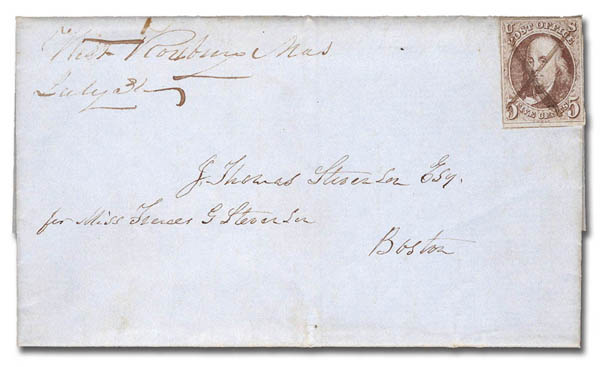 West Roxbury Mas
July 31
5
U S
POST OFFICE
5 FIVE CENTS 5
J. Thomas Stevenson Esq.
for Miss Frances G Stevenson
Boston